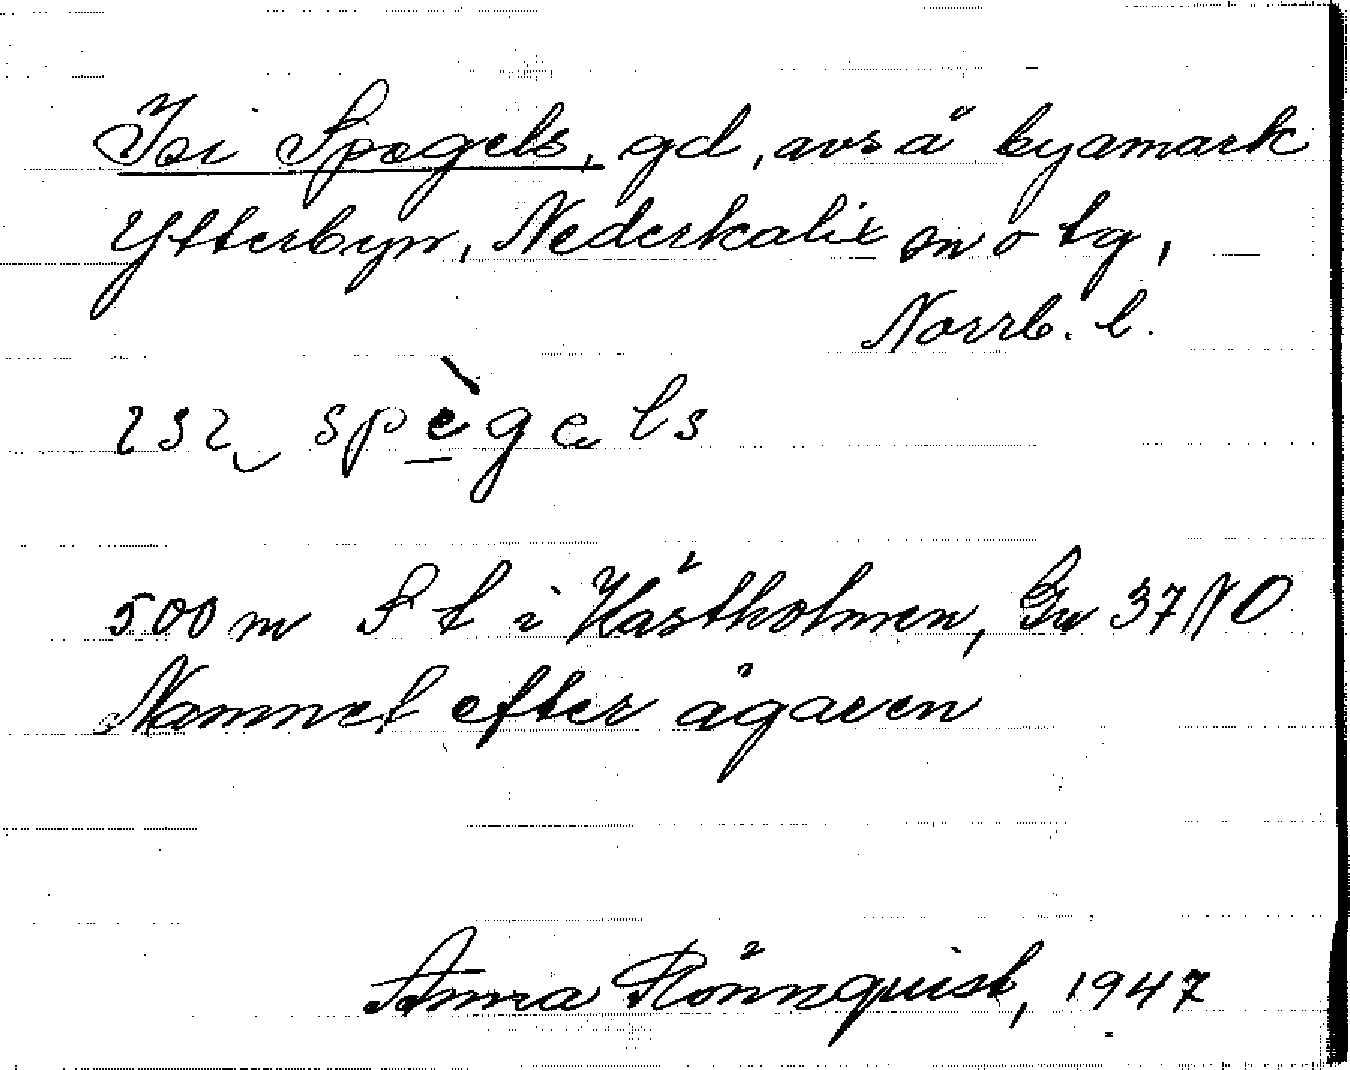 Isi Spegels, gd, avs å byamark
Ytterbyn, Nederkalix sn o tg,
Norrb. l.
ɩsɩ spègels
500 m S t i Hästholmen, Gw 37 NO
Namnet efter ägaren
Anna Rönnquist, 1947